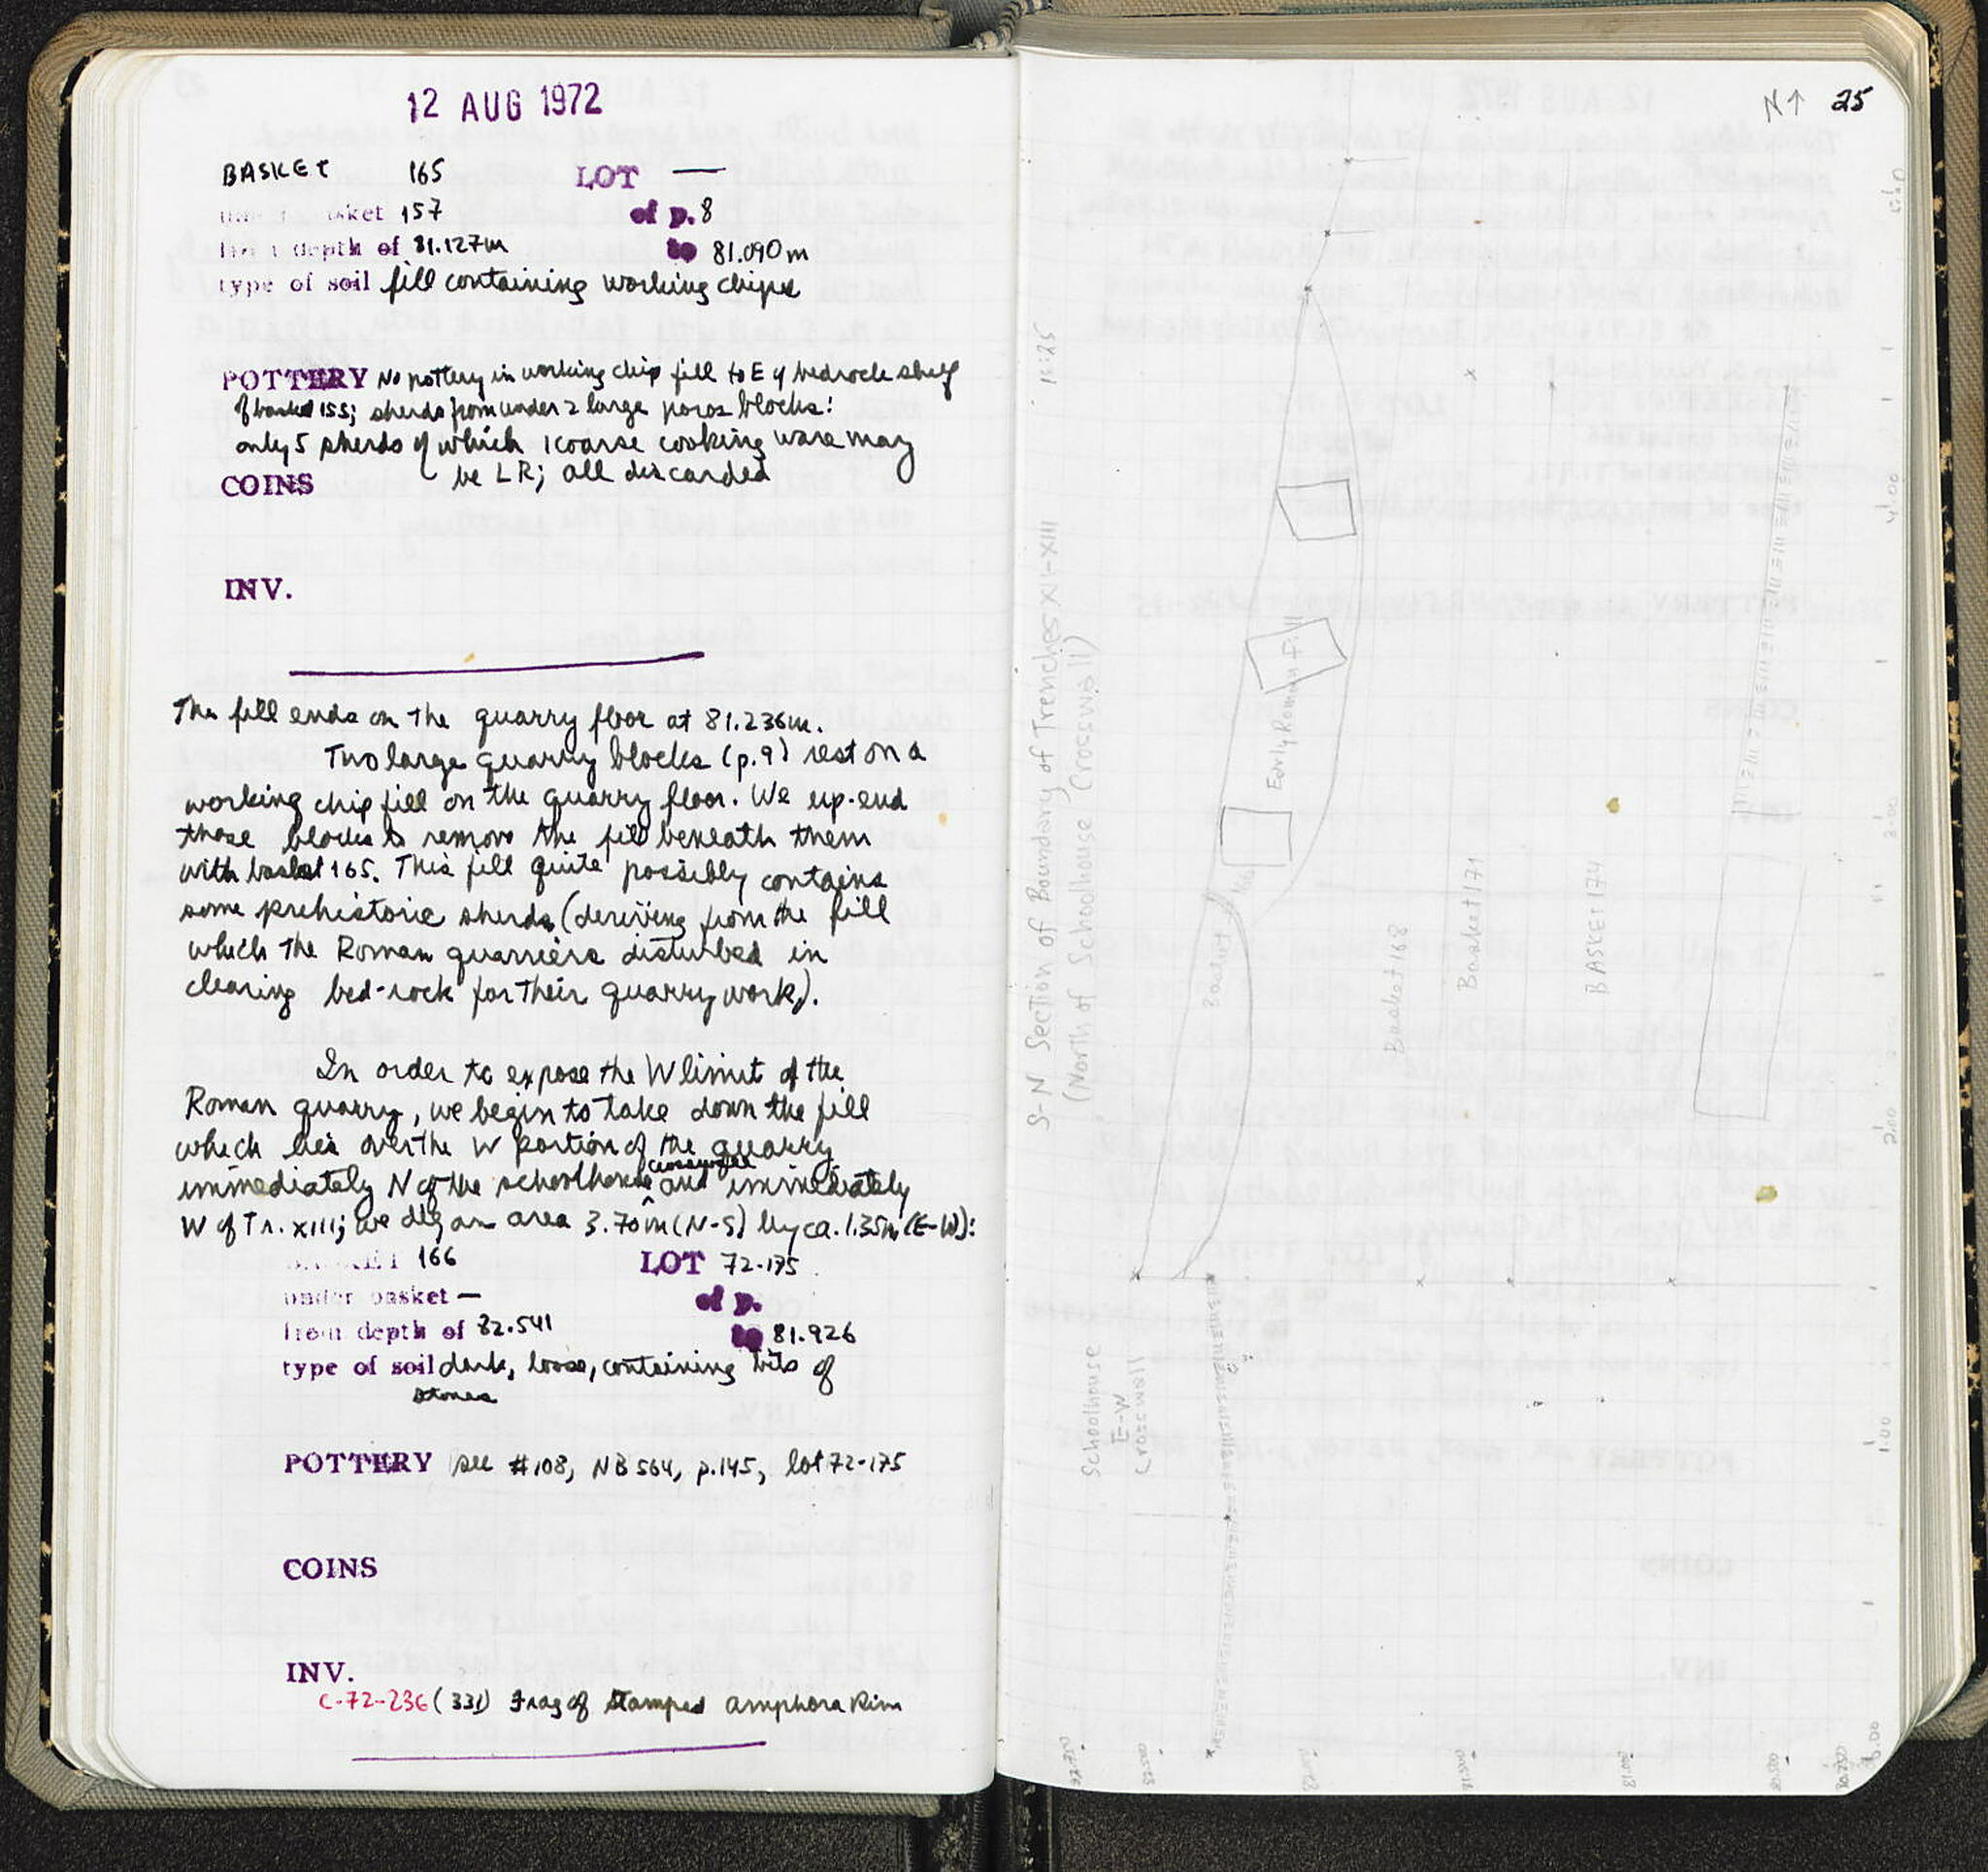 12 AUG 1972
BASKET 165 LOT —
under basket 157 of p. 8
from depth of 81.127m to 81.090m
type of soil fill containing working chips
POTTERY No pottery in working chip fill to E of bedrock shelf
of basket 155; sherds from under 2 large poros blocks:
only 5 sherds of which 1 coarse cooking ware may
be LR; all discarded
COINS
INV.
The fill ends on the quarry floor at 81.236m.
Two large quarry blocks (p.9) rest on a
working chip fill on the quarry floor. We up-end
those blocks to remove the fill beneath them
with basket 165. This fill quite possibly contains
some prehistoric sherds (deriving from the fill
which the Roman quarriers disturbed in
clearing bed-rock for their quarry work).
In order to expose the W limit of the
Roman quarry, we begin to take down the fill
which lies over the W portion of the quarry
immediately N of the schoolhouse crosswall and immediately
W of Tr. XIII; we dig an area 3.70m (N-S) by ca. 1.35m (E-W):
BASKET 166 LOT 72-175
under basket —
of p.
from depth of 82.541 to 81.926
type of soil dark, loose, containing bits of
stones
POTTERY see #108, NB 564, p.145, lot 72-175
COINS
INV.
C-72-236 (331) Frag of stamped amphora Rim
N↑ 25
S-N Section of Boundary of Trenches XII-XIII
(North of Schoolhouse Crosswall)
1:25
Early Roman Fill
Basket 168
Basket 171
BASKET 174
Schoolhouse
E-W
Crosswall
5.00
4.00
3.00
2.00
1.00
0.00